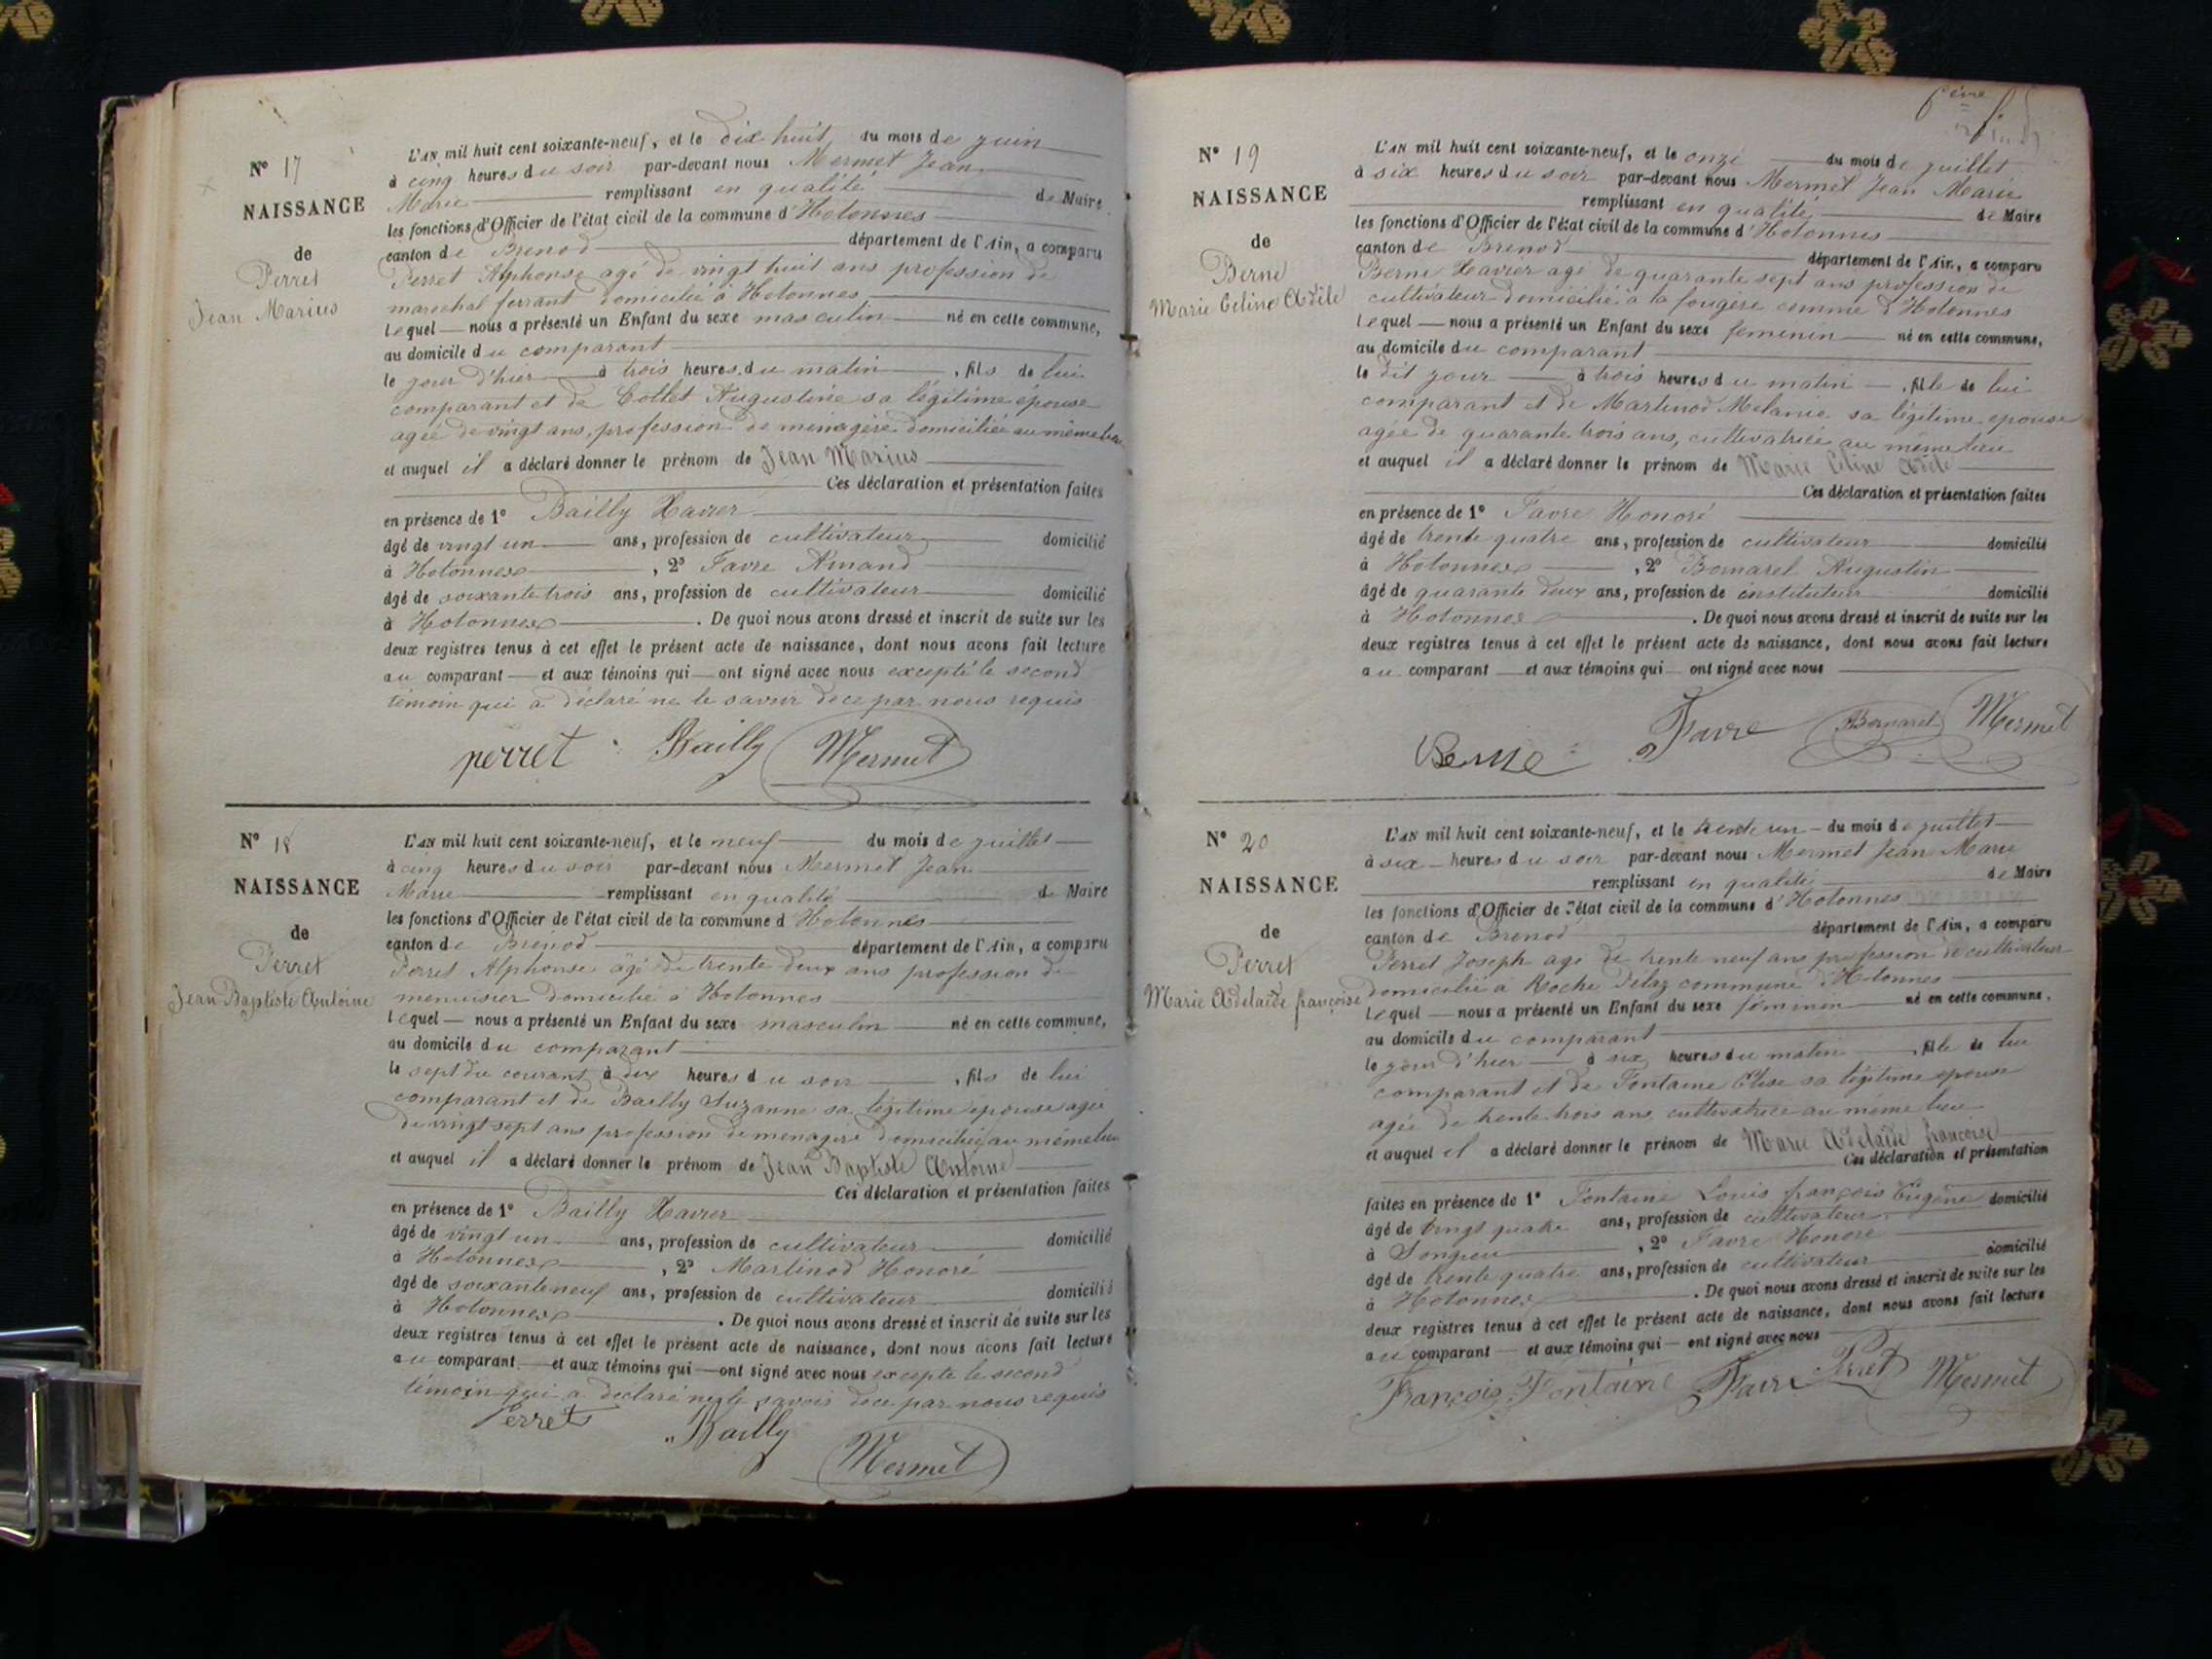 N° 17
NAISSANCE
de
Perret
Jean Marius
L'AN mil huit cent soixante-neuf, et le dix huit du mois de juin
à cinq heures du soir par-devant nous Mermet Jean
Marie remplissant en qualité de Maire
les fonctions d'Officier de l'état civil de la commune d'Hotonnes
canton de Brenod département de l'Ain, a comparu
Perret Alphonse agé de vingt huit ans profession de
marechal ferrant domicilié à Hotonnes
lequel nous a présenté un Enfant du sexe masculin né en cette commune,
au domicile du comparant
le jour d'hier à trois heures du matin, fils de lui
comparant et de Collet Augustine sa légitime épouse
agée de vingt ans, profession de ménagère domiciliée au même lieu
et auquel il a déclaré donner le prénom de Jean Marius
Ces déclaration et présentation faites
en présence de 1° Bailly Xavier
âgé de vingt un ans, profession de cultivateur domicilié
à Hotonnes, 2° Favre Amand
âgé de soixante trois ans, profession de cultivateur domicilié
à Hotonnes. De quoi nous avons dressé et inscrit de suite sur les
deux registres tenus à cet effet le présent acte de naissance, dont nous avons fait lecture
au comparant et aux témoins qui ont signé avec nous excepté le second
témoin qui a déclaré ne le savoir de ce par nous requis
perret Bailly Mermet
N° 18
NAISSANCE
de
Perret
Jean Baptiste Antoine
L'AN mil huit cent soixante-neuf, et le neuf du mois de juillet
à cinq heures du soir par-devant nous Mermet Jean
Marie remplissant en qualité de Maire
les fonctions d'Officier de l'état civil de la commune d'Hotonnes
canton de Brénod département de l'Ain, a comparu
Perret Alphonse âgé de trente deux ans profession de
menuisier domicilié à Hotonnes
lequel nous a présenté un Enfant du sexe masculin né en cette commune,
au domicile du comparant
le sept du courant à dix heures du soir, fils de lui
comparant et de Bailly Suzanne sa légitime épouse agée
de vingt sept ans profession de menagère domiciliée au même lieu
et auquel il a déclaré donner le prénom de Jean Baptiste Antoine
Ces déclaration et présentation faites
en présence de 1° Bailly Xavier
âgé de vingt un ans, profession de cultivateur domicilié
à Hotonnes, 2° Martinod Honoré
âgé de soixante neuf ans, profession de cultivateur domicilié
à Hotonnes. De quoi nous avons dressé et inscrit de suite sur les
deux registres tenus à cet effet le présent acte de naissance, dont nous avons fait lecture
au comparant et aux témoins qui ont signé avec nous excepté le second
témoin qui a déclaré ne le savoir de ce par nous requis
Perret Bailly
Mermet
N° 19
NAISSANCE
de
Berne
Marie Celine Adèle
L'AN mil huit cent soixante-neuf, et le onze du mois de juillet
à six heures du soir par-devant nous Mermet Jean Marie
remplissant en qualité de Maire
les fonctions d'Officier de l'état civil de la commune d'Hotonnes
canton de Brenod département de l'Ain, a comparu
Berne Xavier agé de quarante sept ans profession de
cultivateur domicilié à la fougère comme d'Hotonnes
lequel nous a présenté un Enfant du sexe femenin né en cette commune,
au domicile du comparant
le dit jour à trois heures du matin, fille de lui
comparant et de Martinod Melanie sa légitime epouse
agée de quarante trois ans, cultivatrice au même lieu
et auquel il a déclaré donner le prénom de Marie Celine Adèle
Ces déclaration et présentation faites
en présence de 1° Favre Honoré
âgé de trente quatre ans, profession de cultivateur domicilié
à Hotonnes, 2° Bornarel Augustin
âgé de quarante deux ans, profession de instituteur domicilié
à Hotonnes. De quoi nous avons dressé et inscrit de suite sur les
deux registres tenus à cet effet le présent acte de naissance, dont nous avons fait lecture
au comparant et aux témoins qui ont signé avec nous
Berne Favre Bornarel Mermet
N° 20
NAISSANCE
de
Perret
Marie Adelaïde françoise
L'AN mil huit cent soixante-neuf, et le trente un du mois de juillet
à six heures du soir par-devant nous Mermet Jean Marie
remplissant en qualité de Maire
les fonctions d'Officier de l'état civil de la commune d'Hotonnes
canton de Brenod département de l'Ain, a comparu
Perret Joseph agé de trente neuf ans profession de cultivateur
domicilié à Roche commune d'Hotonnes
lequel nous a présenté un Enfant du sexe féminin né en cette commune,
au domicile du comparant
le jour d'hier à six heures du matin, fille de lui
comparant et de Fontaine Elise sa légitime epouse
agée de trente trois ans cultivatrice au même lieu
et auquel il a déclaré donner le prénom de Marie Adelaïde françoise
Ces déclaration et présentation
faites en présence de 1° Fontaine Louis françois Eugène domicilié
âgé de vingt quatre ans, profession de cultivateur
à Songieu, 2° Favre Honoré
âgé de trente quatre ans, profession de cultivateur domicilié
à Hotonnes. De quoi nous avons dressé et inscrit de suite sur les
deux registres tenus à cet effet le présent acte de naissance, dont nous avons fait lecture
au comparant et aux témoins qui ont signé avec nous
François Fontaine Favre Perret Mermet